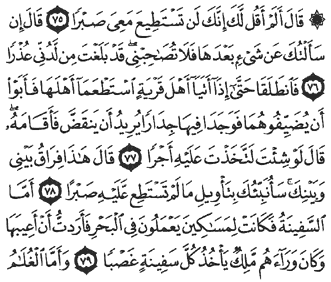 ۞ قَالَ أَلَمْ أَقُل لَّكَ إِنَّكَ لَن تَسْتَطِيعَ مَعِىَ صَبْرًا ٧٥ قَالَ إِن
سَأَلْتُكَ عَن شَىْءٍۭ بَعْدَهَا فَلَا تُصَٰحِبْنِى ۖ قَدْ بَلَغْتَ مِن لَّدُنِّى عُذْرًا
٧٦ فَٱنطَلَقَا حَتَّىٰٓ إِذَآ أَتَيَآ أَهْلَ قَرْيَةٍ ٱسْتَطْعَمَآ أَهْلَهَا فَأَبَوْا۟
أَن يُضَيِّفُوهُمَا فَوَجَدَا فِيهَا جِدَارًا يُرِيدُ أَن يَنقَضَّ فَأَقَامَهُۥ ۖ
قَالَ لَوْ شِئْتَ لَتَّخَذْتَ عَلَيْهِ أَجْرًا ٧٧ قَالَ هَٰذَا فِرَاقُ بَيْنِى
وَبَيْنِكَ ۚ سَأُنَبِّئُكَ بِتَأْوِيلِ مَا لَمْ تَسْتَطِع عَّلَيْهِ صَبْرًا ٧٨ أَمَّا
ٱلسَّفِينَةُ فَكَانَتْ لِمَسَٰكِينَ يَعْمَلُونَ فِى ٱلْبَحْرِ فَأَرَدتُّ أَنْ أَعِيبَهَا
وَكَانَ وَرَآءَهُم مَّلِكٌ يَأْخُذُ كُلَّ سَفِينَةٍ غَصْبًا ٧٩ وَأَمَّا ٱلْغُلَٰمُ